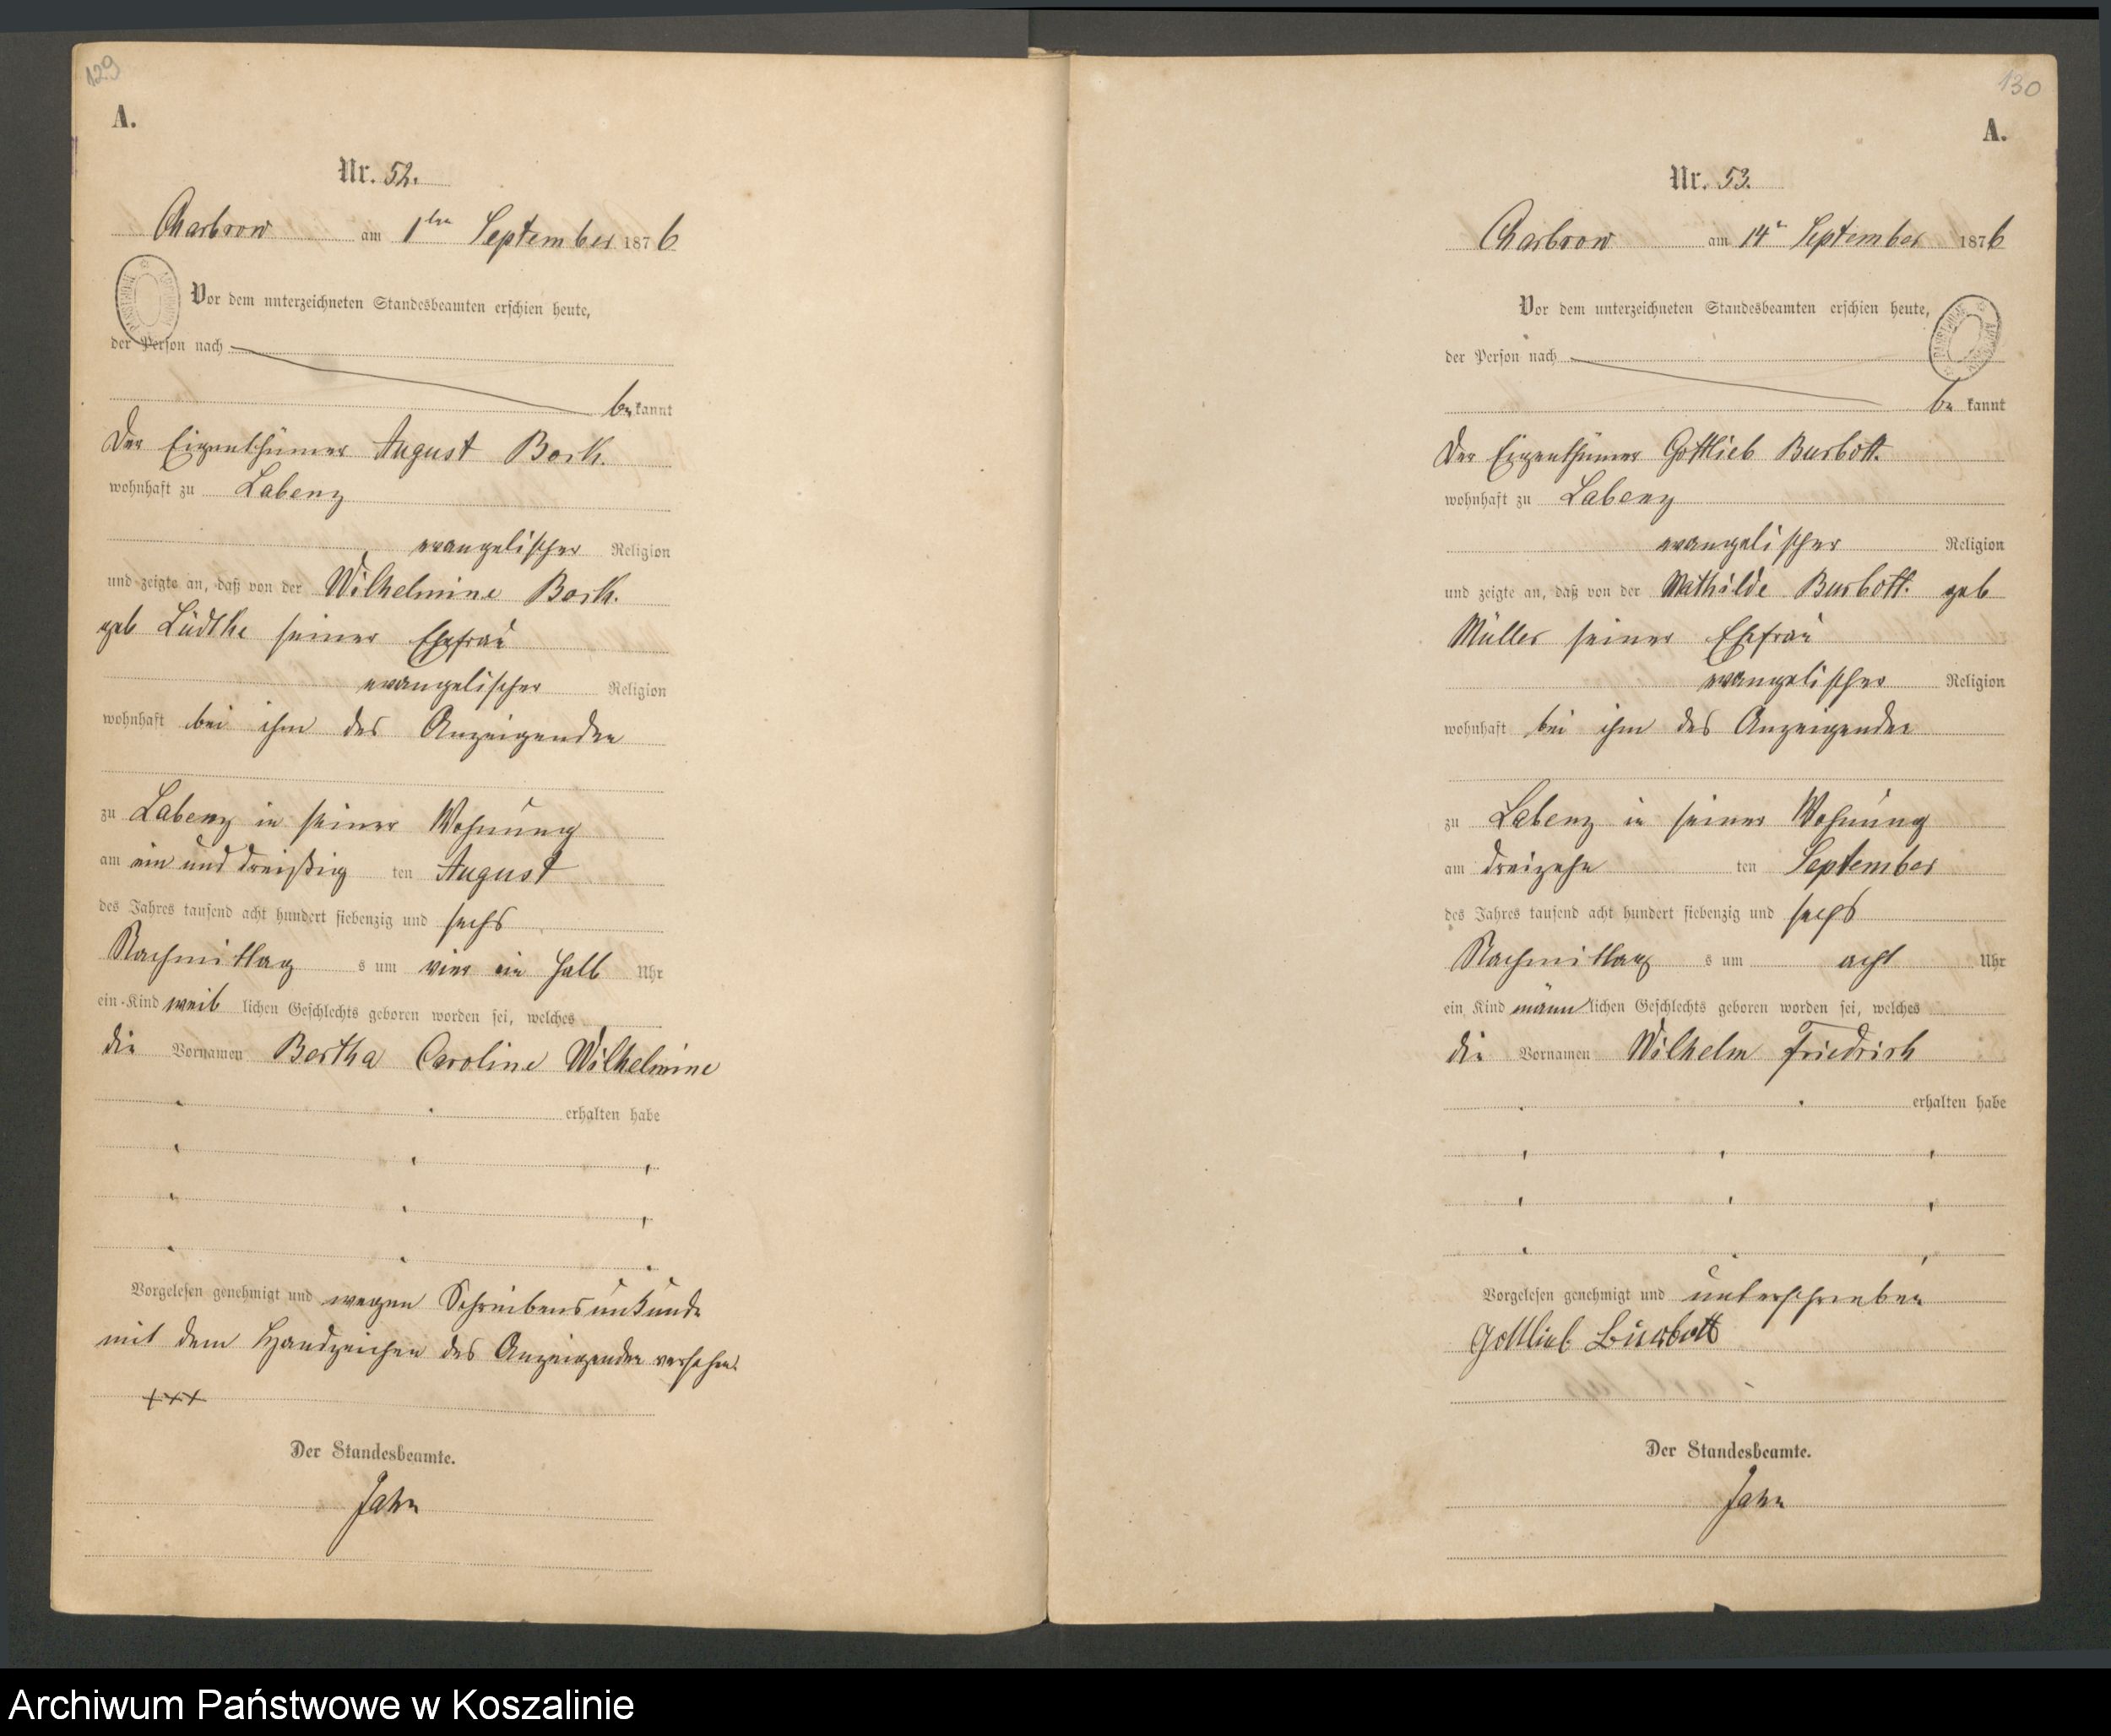 129
A.
Nr. 52.
Charbrow am 1ten September 1876
Vor dem unterzeichneten Standesbeamten erschien heute,
der Person nach
bekannt
Der Eigenthümer August Bork.
wohnhaft zu Labenz
evangelischer Religion
und zeigte an, daß von der Wilhelmine Bork.
geb Lüdtke seiner Ehefrau
evangelischer Religion
wohnhaft bei ihm des Anzeigenden
zu Labenz in seiner Wohnung
am ein und dreißig ten August
des Jahres tausend acht hundert siebenzig und sechs
Nachmittag s um vier ein halb Uhr
ein Kind weib lichen Geschlechts geboren worden sei, welches
die Vornamen Bertha Caroline Wilhelmine
erhalten habe
Vorgelesen genehmigt und wegen Schreibensunkunde
mit dem Handzeichen des Anzeigenden versehen.
+++
Der Standesbeamte.
Jahn
130
A.
Nr. 53.
Charbrow am 14 September 1876
Vor dem unterzeichneten Standesbeamten erschien heute,
der Person nach
be kannt
Der Eigenthümer Gottlieb Burbott.
wohnhaft zu Labenz
evangelischer Religion
und zeigte an, daß von der Mathilde Burbott. geb
Müller seiner Ehefrau
evangelischer Religion
wohnhaft bei ihm des Anzeigenden
zu Labenz in seiner Wohnung
am dreizehn ten September
des Jahres tausend acht hundert siebenzig und sechs
Nachmittag s um acht Uhr
ein Kind männ lichen Geschlechts geboren worden sei, welches
die Vornamen Wilhelm Friedrich
erhalten habe
Vorgelesen genehmigt und unterschrieben
Gottlieb Burbott
Der Standesbeamte.
Jahn
Archiwum Państwowe w Koszalinie